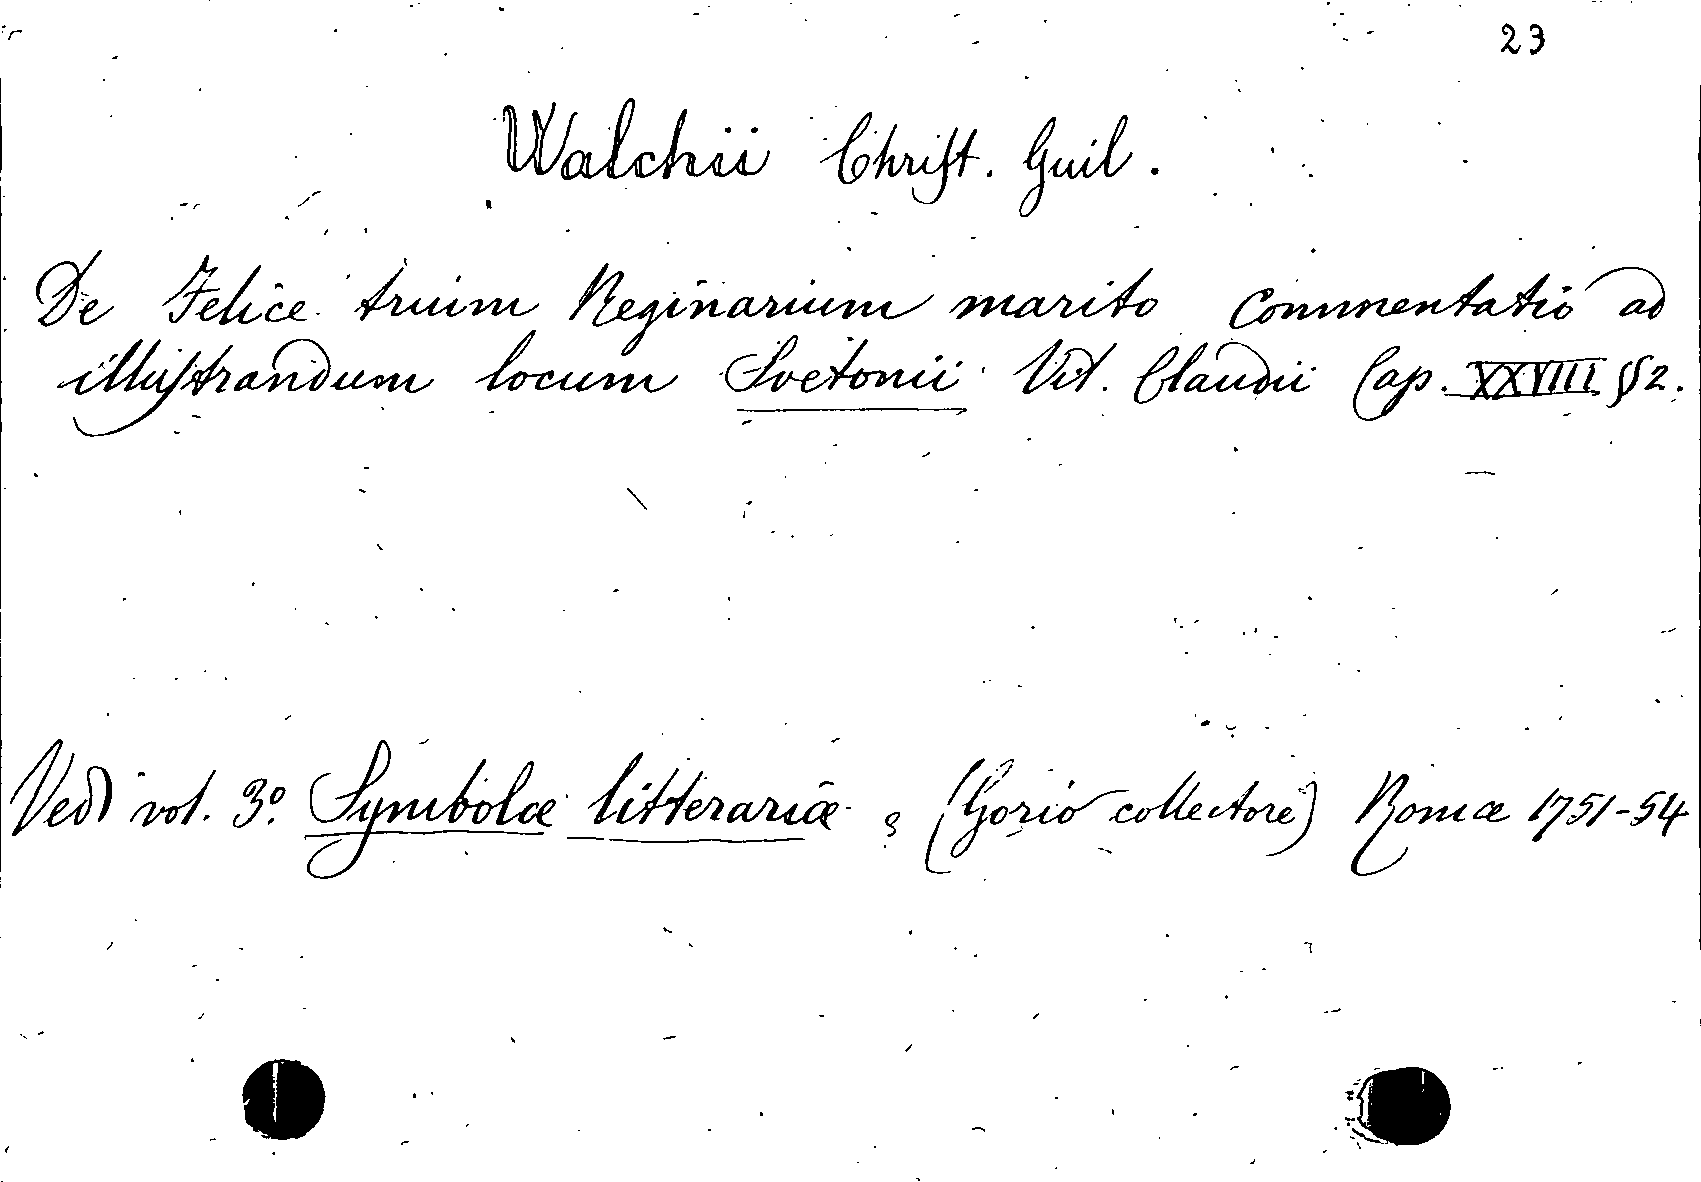 23
Walchii Christ. Guil.
De Felice trium Reginarium marito commentatio ad
illustrandum locum Svetonii Vit. Claudii Cap. XXVIII §2.
Vedi vol. 3º Symbolæ litterariæ (Gorio collectore) Romæ 1751-54